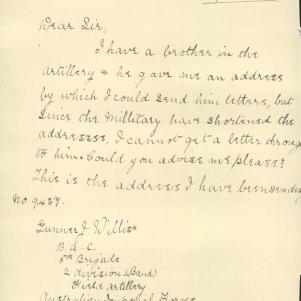 Dear Sir,
I have a brother in the
Artillery & he gave me an address
by which I could send him letters, but
since the Millitary have shortened the
addresses, I cannot get a letter through
to him. Could you advise me please?
This is the address I have been sending
No 9437.
Gunner J Willis
B. A. C.
5th Brigade
2 division (Band)
Field Artillery
Australian Imperial Forces